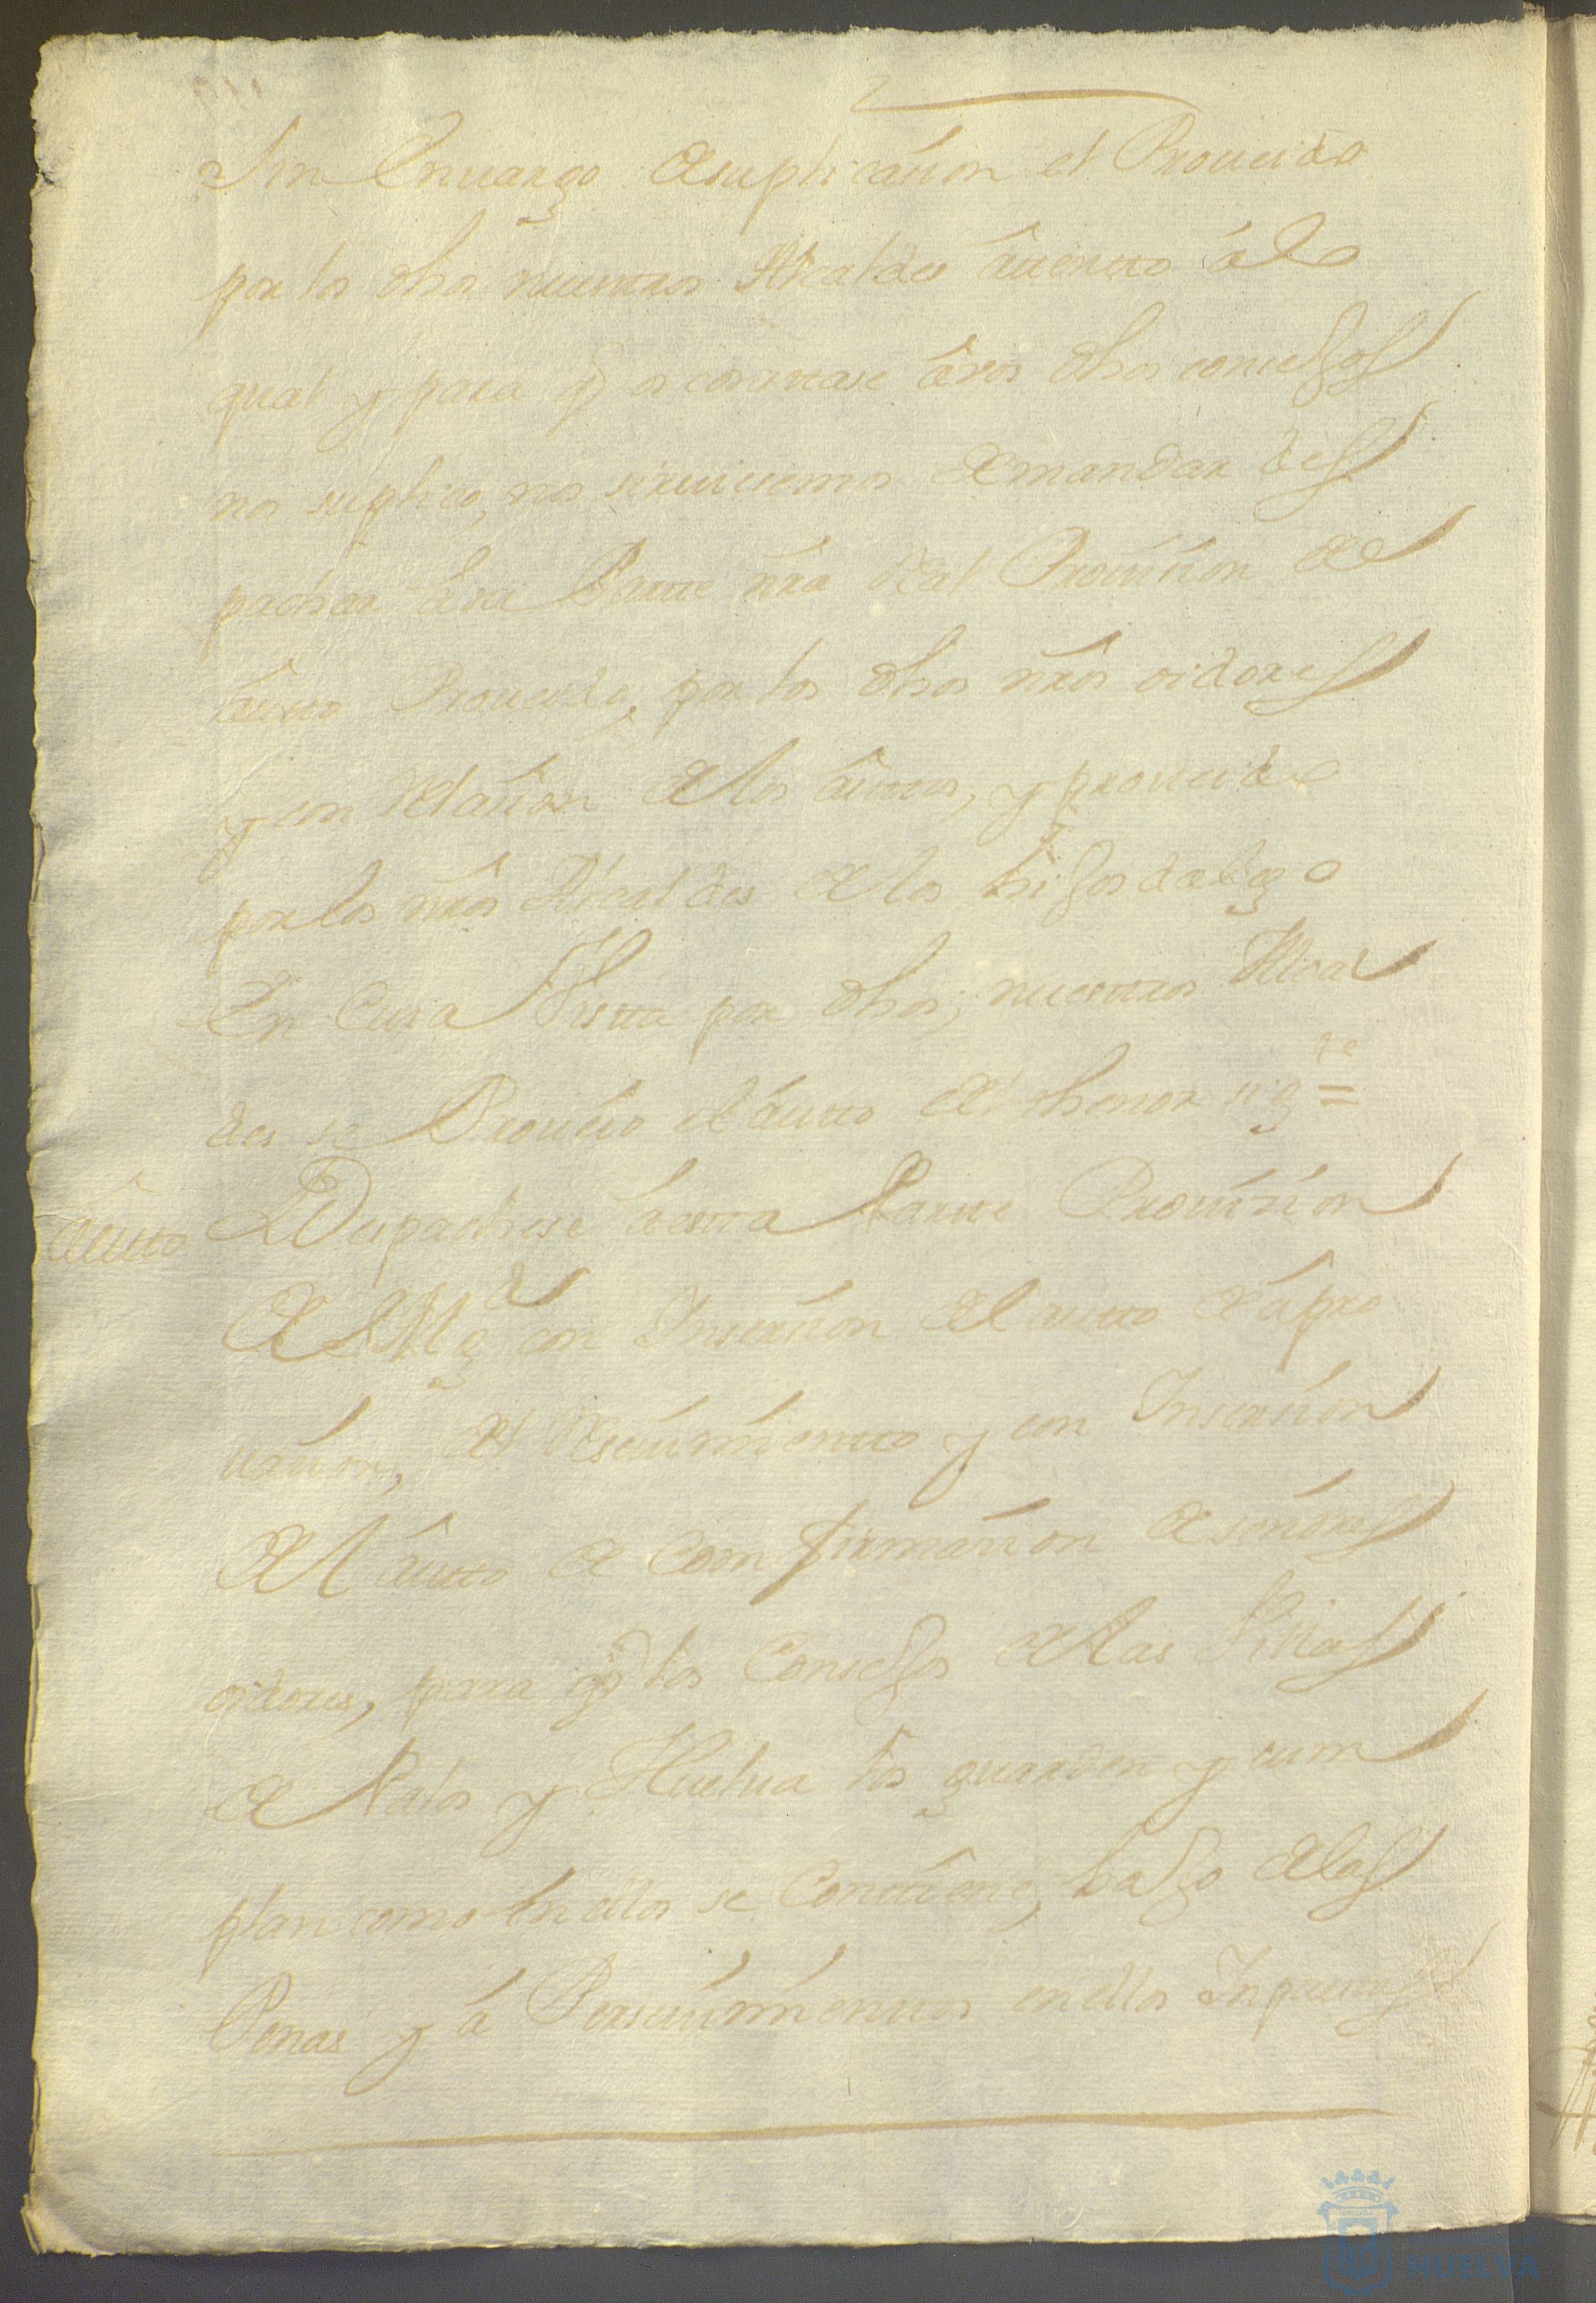 Sin Envargo de suplicacion el Proueido
por los dhos nuestros Alcaldes atento a lo
qual y para q̃ constase a los dhos consejos
nos suplico, nos siruiesemos de mandar des
pachar a su Parte nr̃a Real Prouision de
auto Proueido, por los dhos nr̃os oidores
y con Relacion de los autos, y proueido
por los nr̃os Alcaldes de los hijos dalgo
En Cuia Vista por dhos, nuestros Alcal
des se Proueio el auto del thenor sigte =
Auto Despachese a esta Parte Prouision
de S Mgd con Inserzion del auto de apro
uacion, del Reseuimiento y con Inserzion
del auto de Confirmazion de señores
oidores, para q̃ los Consejos de las Villas
de Palos y Huelua los guarden y cum
plan como En ellos se Contiene, bajo de las
Penas y aPerseuimientos en ellos Inpuestos
HUELVA